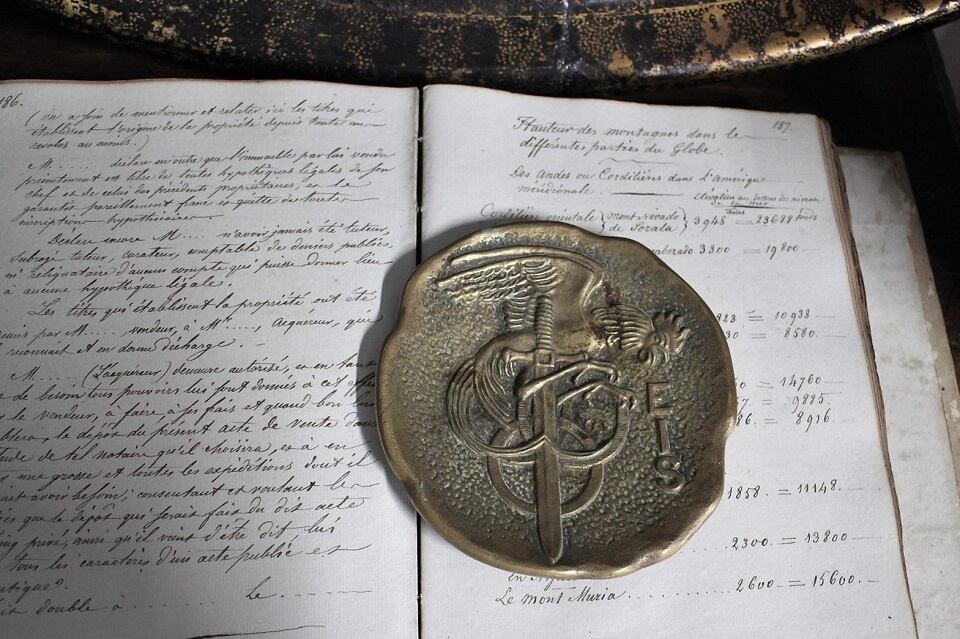 186.
(On a soin de mentionner et relater ici les titres qui
établissent l'origine de la propriété depuis trente an-
révolus au moins.)
M...... déclare en outre que l'immeuble par lui vendu
présentement est libre de toutes hypothèques légales de son
chef et de celui des précédents propriétaires, et le
garantir pareillement franc et quitte de toute
inscription hypothécaire.
Déclare encore M.... n'avoir jamais été tuteur,
subrogé tuteur, curateur, comptable de deniers publics,
ni réliquataire d'aucun compte qui puisse donner lieu
à aucune hypothèque légale.
Les titres qui établissent la propriété ont été
par M..... vendeur, à Mr....., Acquéreur, qui
reconnait et en donne décharge.
M...... (L'acquéreur) demeure autorisé, et en tant
de besoin tous pouvoirs lui sont donnés à cet effet
le vendeur, à faire, à ses frais et quand bon
le dépôt du présent acte de vente dans
de tel notaire qu'il choisira, et à en
grosse et toutes les expéditions dont il
avoir besoin; consentant et voulant
que le dépôt qui serait fait du dit acte
privé, ainsi qu'il vient d'être dit lui
tous les caractères d'un acte public et
double à .......... Le.......
187.
Hauteur des montagnes dans les
différentes parties du Globe.
Des Andes ou Cordilières dans l'amérique
méridionale.
Élévation au dessus du niveau
de la mer
Toises
Cordilière orientale (mont névado) 3948 = 23688 pieds
de Sorata
3300 = 19800
= 10938
= 8580
= 14760
= 9885.
= 8916.
1858. = 11148.
2300. = 13800
Le mont Muria 2600 = 15600.
EIS